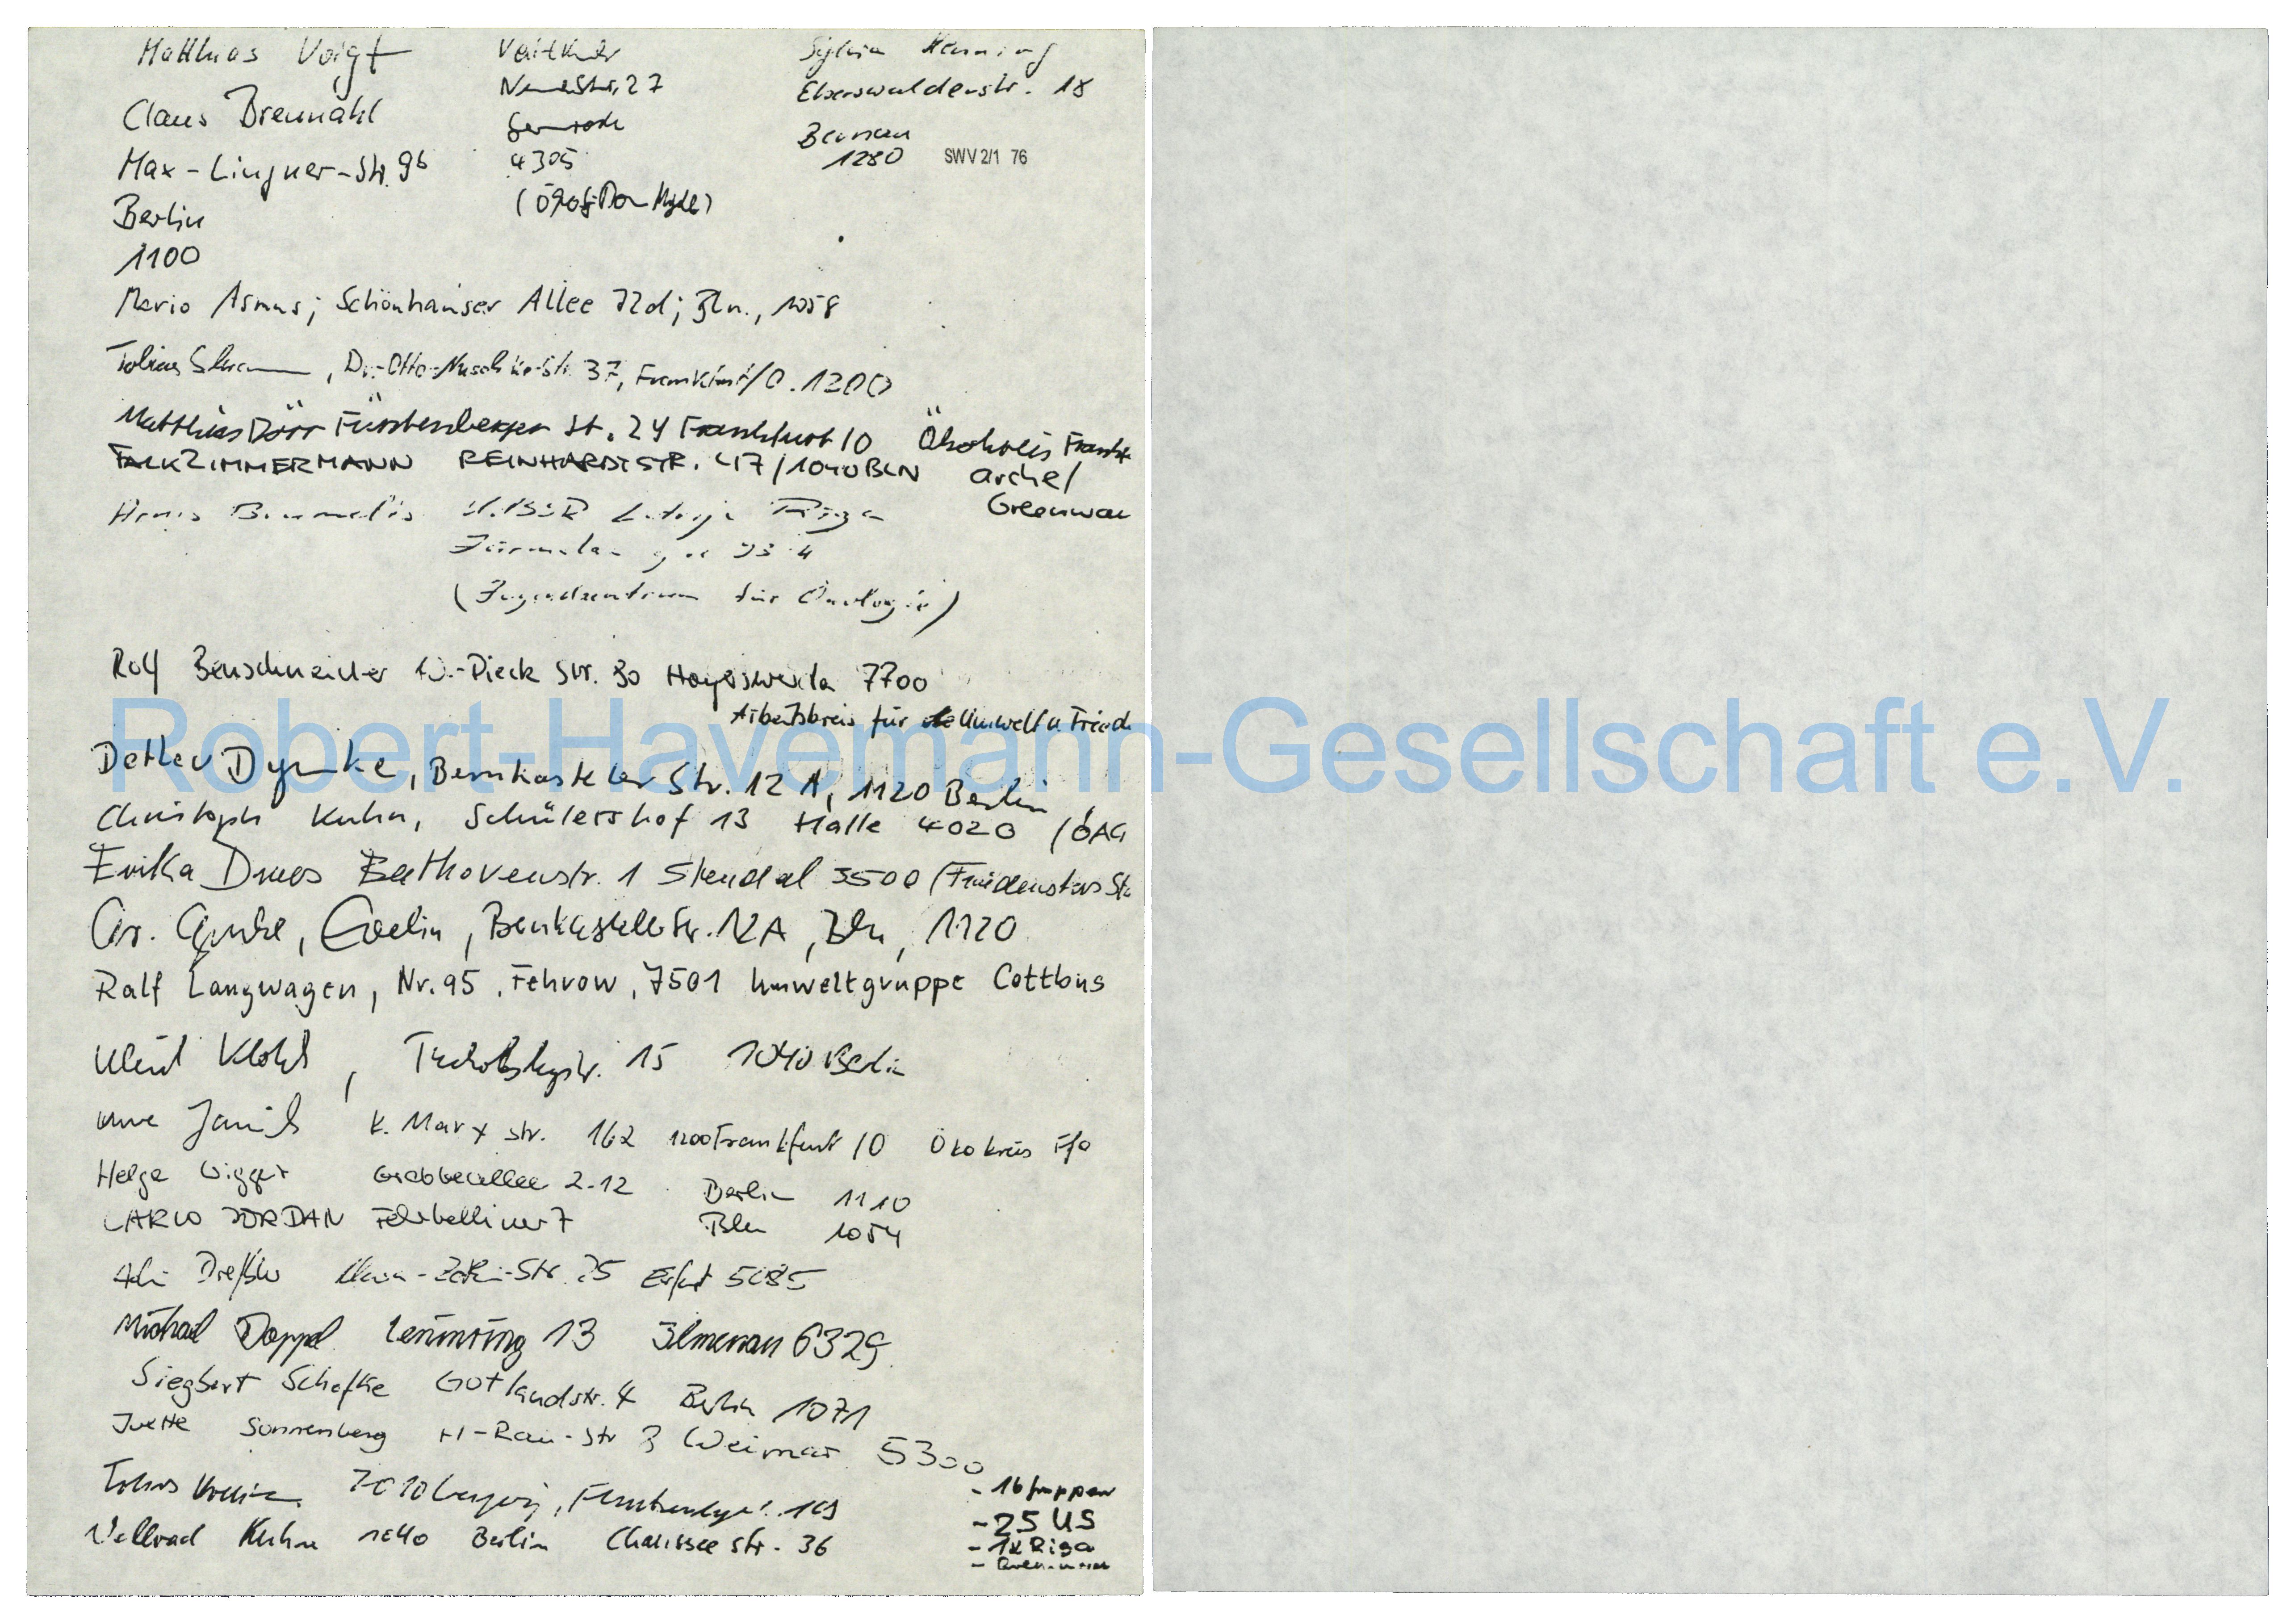 Matthias Voigt
Claus Brennahl
Max-Lingner-Str. 9b
Berlin
1100
27
4305
Sylvia Henning
Eberswalderstr. 18
Bernau
1280
SWV 2/1 76
Mario Asmus; Schönhauser Allee 72d; Bln., 1058
Tobias, Dr.-Otto-Nuschke-Str. 37, Frankfurt/O. 1200
Matthias Dörr Fürstenberger St. 24 Frankfurt/O Ökokreis Frankf
FALK ZIMMERMANN REINHARDTSTR. 47/1040 BLN arche/
Greenway
UdSSR Riga
(Jugendzentrum für Ökologie)
Rolf Benschneider W.-Pieck Str. 30 Hoyerswerda 7700
Arbeitskreis für Umwelt u. Fried
Detlev Dymke, Bernkasteler Str. 12 A, 1120 Berlin
Christoph Kuhn, Schülershof 13 Halle 4020 (ÖAG
Erika Drees Beethovenstr. 1 Stendal 3500 (Friedenskrs Ste
Evelin, Bernkasteler Str. 12A, Bln, 1120
Ralf Langwagen, Nr. 95, Fehrow, 7501 Umweltgruppe Cottbus
Tucholskystr. 15 1040 Berlin
Uwe K. Marx str. 162 1200 Frankfurt/O Ökokreis F/O
Helge Grabbeallee 2-12 Berlin 1110
CARLO JORDAN Fehrbelliner 7 Bln 1054
Clara-Zetkin-Str. 25 Erfurt 5085
Michael Doppel Leninring 13 Ilmenau 6329
Siegbert Schefke Gotlandstr. 4 Berlin 1071
Ivette Sonnenberg H-Rau-Str 3 Weimar 5300
Tobias
Vollrad Kuhn 1040 Berlin Chausseestr. 36
- 16 Gruppen
- 25 US
- 1x Riga
Robert-Havemann-Gesellschaft e.V.